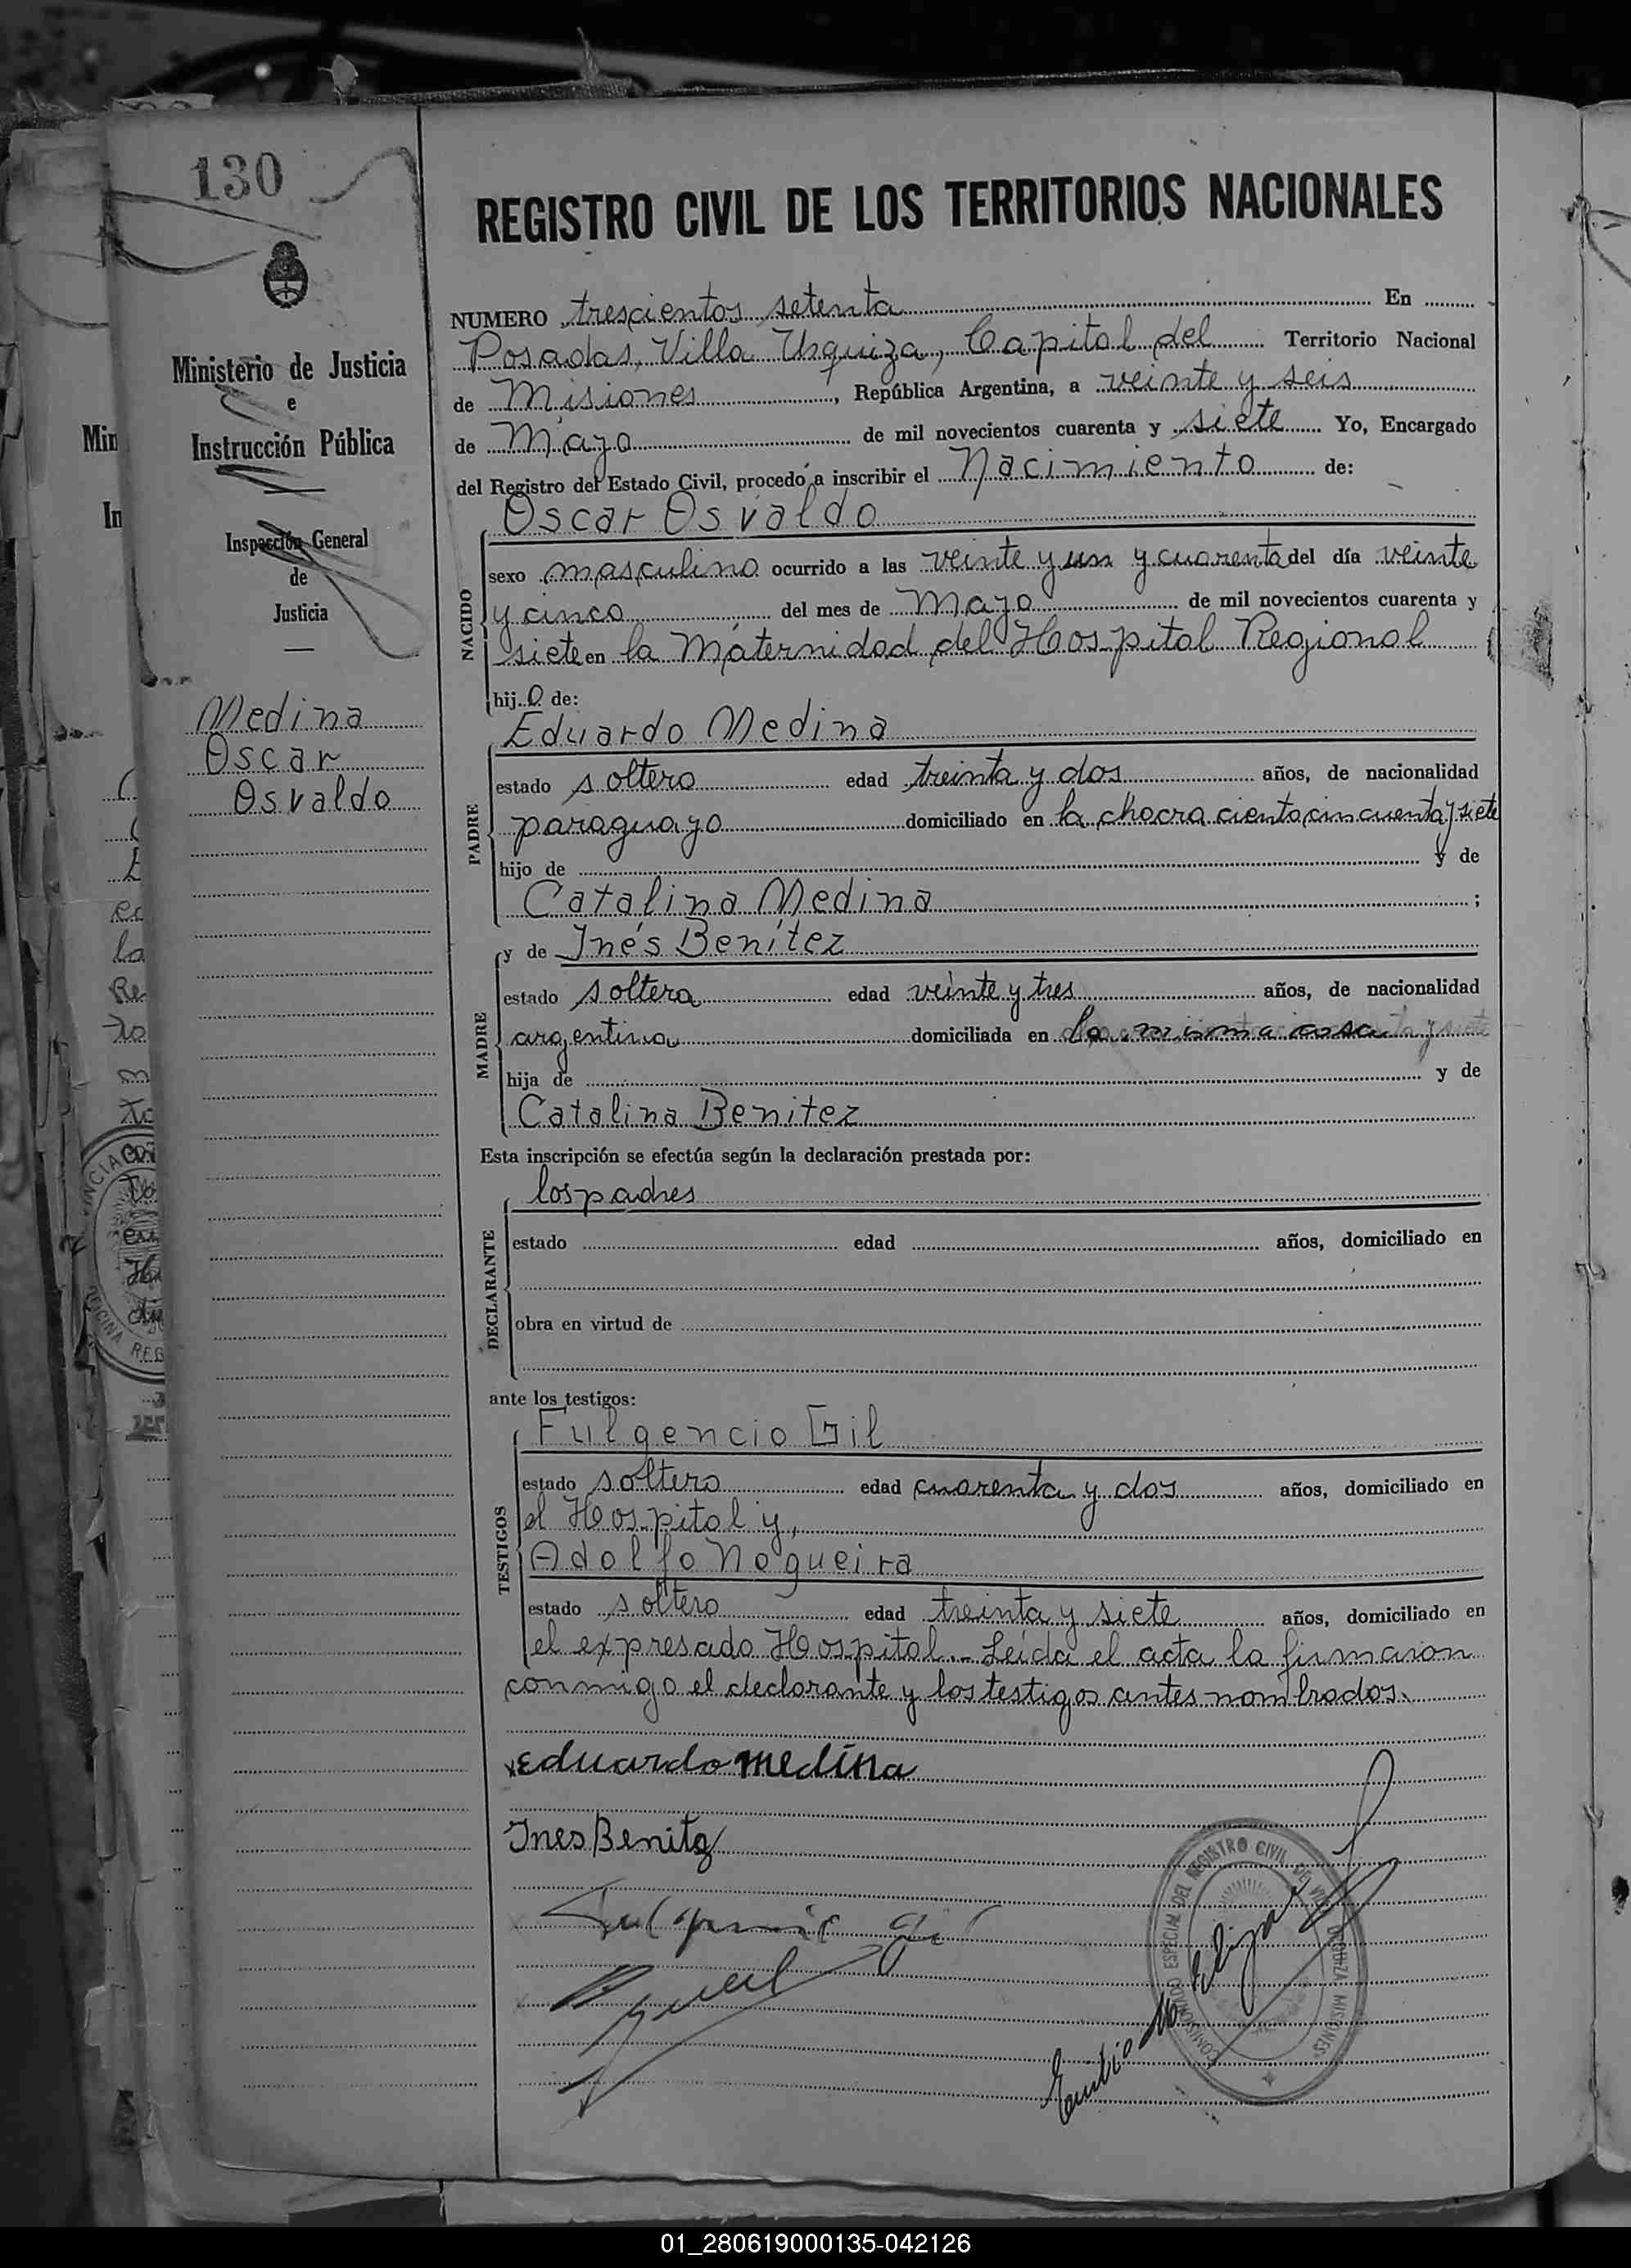 130
REGISTRO CIVIL DE LOS TERRITORIOS NACIONALES
Ministerio de Justicia
e
Instrucción Pública
Inspección General
de
Justicia
Medina
Oscar
Osvaldo
NUMERO trescientos setenta En
Posadas, Villa Urquiza, Capital del Territorio Nacional
de Misiones, República Argentina, a veinte y seis
de Mayo de mil novecientos cuarenta y siete Yo, Encargado
del Registro del Estado Civil, procedo a inscribir el Nacimiento de:
Oscar Osvaldo
NACIDO
sexo masculino ocurrido a las veinte y un y cuarenta del día veinte
y cinco del mes de Mayo de mil novecientos cuarenta y
siete en la Maternidad del Hospital Regional
hijo de:
Eduardo Medina
PADRE
estado soltero edad treinta y dos años, de nacionalidad
paraguayo domiciliado en la chacra ciento cincuenta y siete
hijo de y de
Catalina Medina ;
y de Inés Benítez
MADRE
estado soltera edad veinte y tres años, de nacionalidad
argentina domiciliada en la misma casa
hija de y de
Catalina Benitez
Esta inscripción se efectúa según la declaración prestada por:
los padres
DECLARANTE
estado edad años, domiciliado en
obra en virtud de
ante los testigos:
Fulgencio Gil
TESTIGOS
estado soltero edad cuarenta y dos años, domiciliado en
el Hospital y,
Adolfo Nogueira
estado soltero edad treinta y siete años, domiciliado en
el expresado Hospital.- Leida el acta la firmaron
conmigo el declarante y los testigos antes nombrados.
Eduardo medina
Ines Benitez
COMISIONADO ESPECIAL DEL REGISTRO CIVIL DE VILLA URQUIZA MISIONES
Emilio
01_280619000135-042126